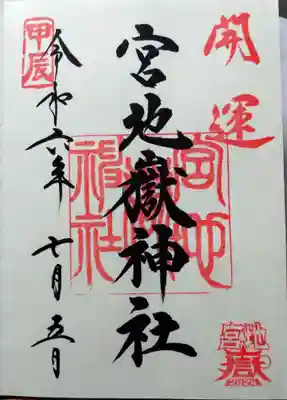 開運
宮地嶽神社
宮地嶽神社
令和六年 七月五日
甲辰
宮地嶽